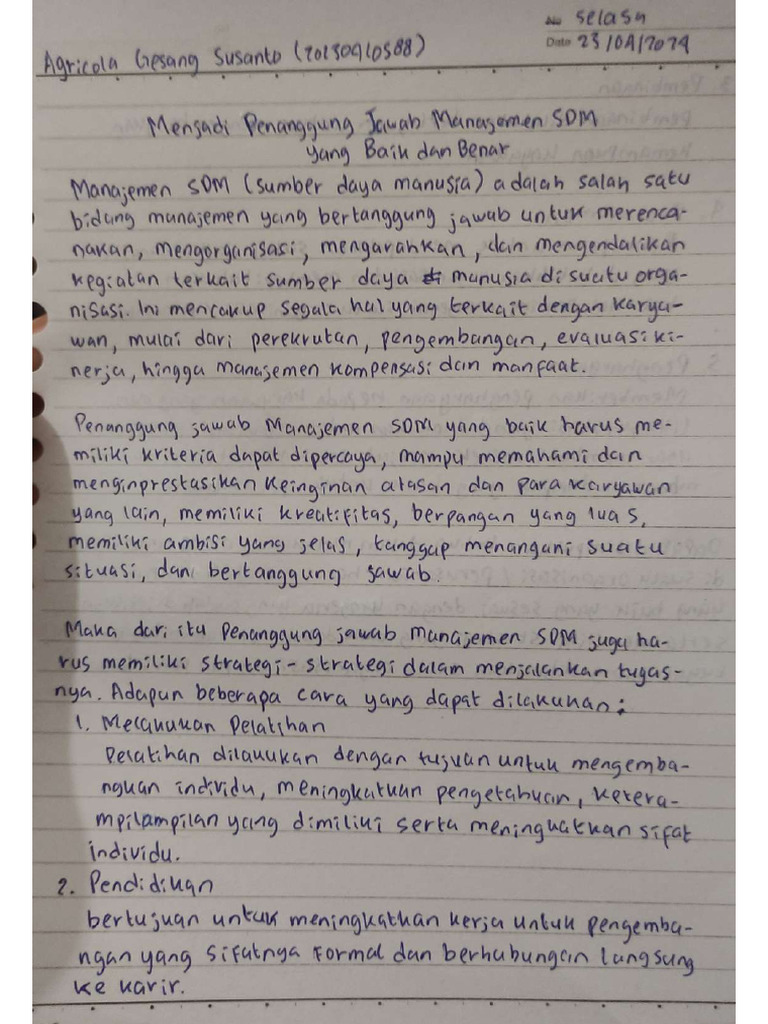 No selasa
Date 23/04/2024
Agricola Gesang Susanto (20230910588)
Menjadi Penanggung Jawab Manajemen SDM
yang Baik dan Benar
Manajemen SDM (sumber daya manusia) adalah salah satu
bidang manajemen yang bertanggung jawab untuk merenca-
nakan, mengorganisasi, mengarahkan, dan mengendalikan
kegiatan terkait sumber daya manusia di suatu orga-
nisasi. Ini mencakup segala hal yang terkait dengan karya-
wan, mulai dari perekrutan, pengembangan, evaluasi ki-
nerja, hingga manajemen kompensasi dan manfaat.
Penanggung jawab Manajemen SDM yang baik harus me-
miliki kriteria dapat dipercaya, mampu memahami dan
menginprestasikan keinginan atasan dan para karyawan
yang lain, memiliki kreatifitas, berpangan yang luas,
memiliki ambisi yang jelas, tanggap menangani suatu
situasi, dan bertanggung jawab.
Maka dari itu Penanggung jawab manajemen SDM juga ha-
rus memiliki strategi-strategi dalam menjalankan tugas-
nya. Adapun beberapa cara yang dapat dilakukan:
1. Melakukan Pelatihan
Pelatihan dilakukan dengan tujuan untuk mengemba-
ngkan individu, meningkatkan pengetahuan, ketera-
mpilampilan yang dimiliki serta meningkatkan sifat
individu.
2. Pendidikan
bertujuan untuk meningkatkan kerja untuk pengemba-
ngan yang sifatnya formal dan berhubungan langsung
ke karir.